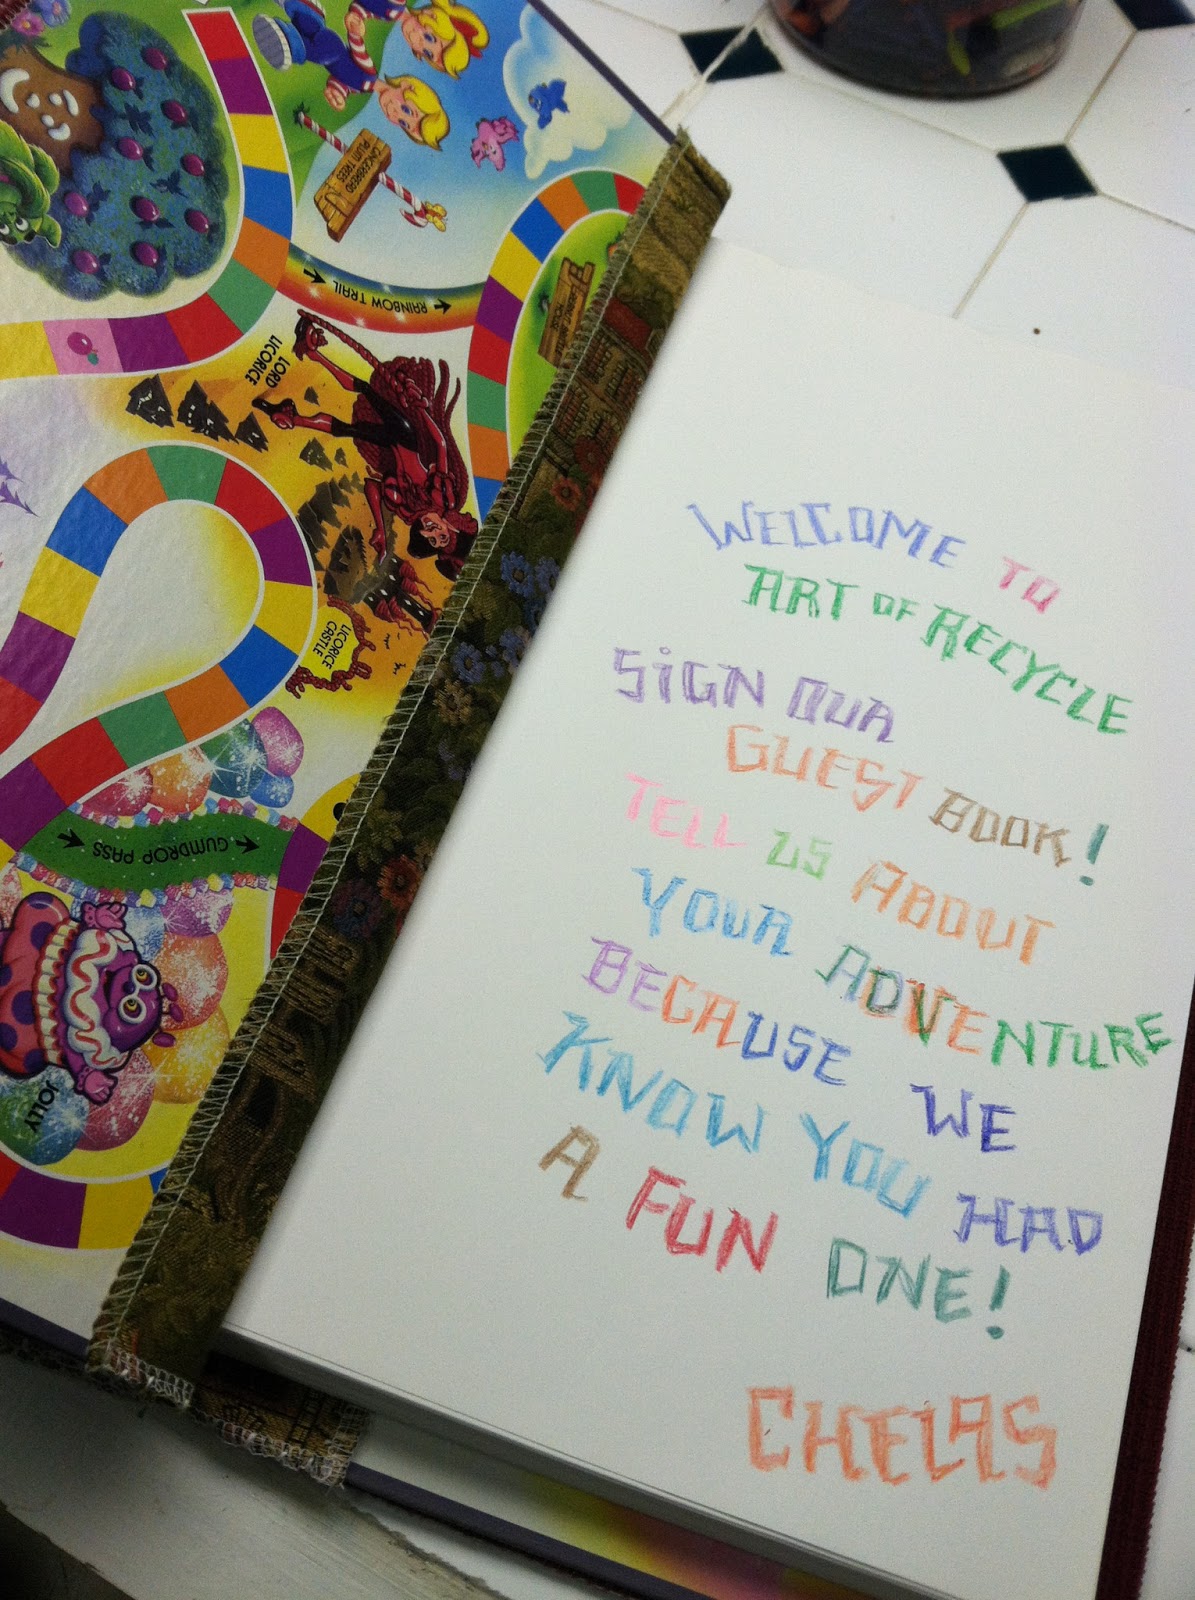 GINGERBREAD
PLUM TREES
RAINBOW TRAIL
LORD
LICORICE
LICORICE
CASTLE
GUMDROP PASS
JOLLY
WELCOME TO
ART OF RECYCLE
SiGN OUR
GUEST BOOK!
TELL US ABOUT
YOUR ADVENTURE
BECAUSE WE
KNOW YOU HAD
A FUN ONE!
CHELAS